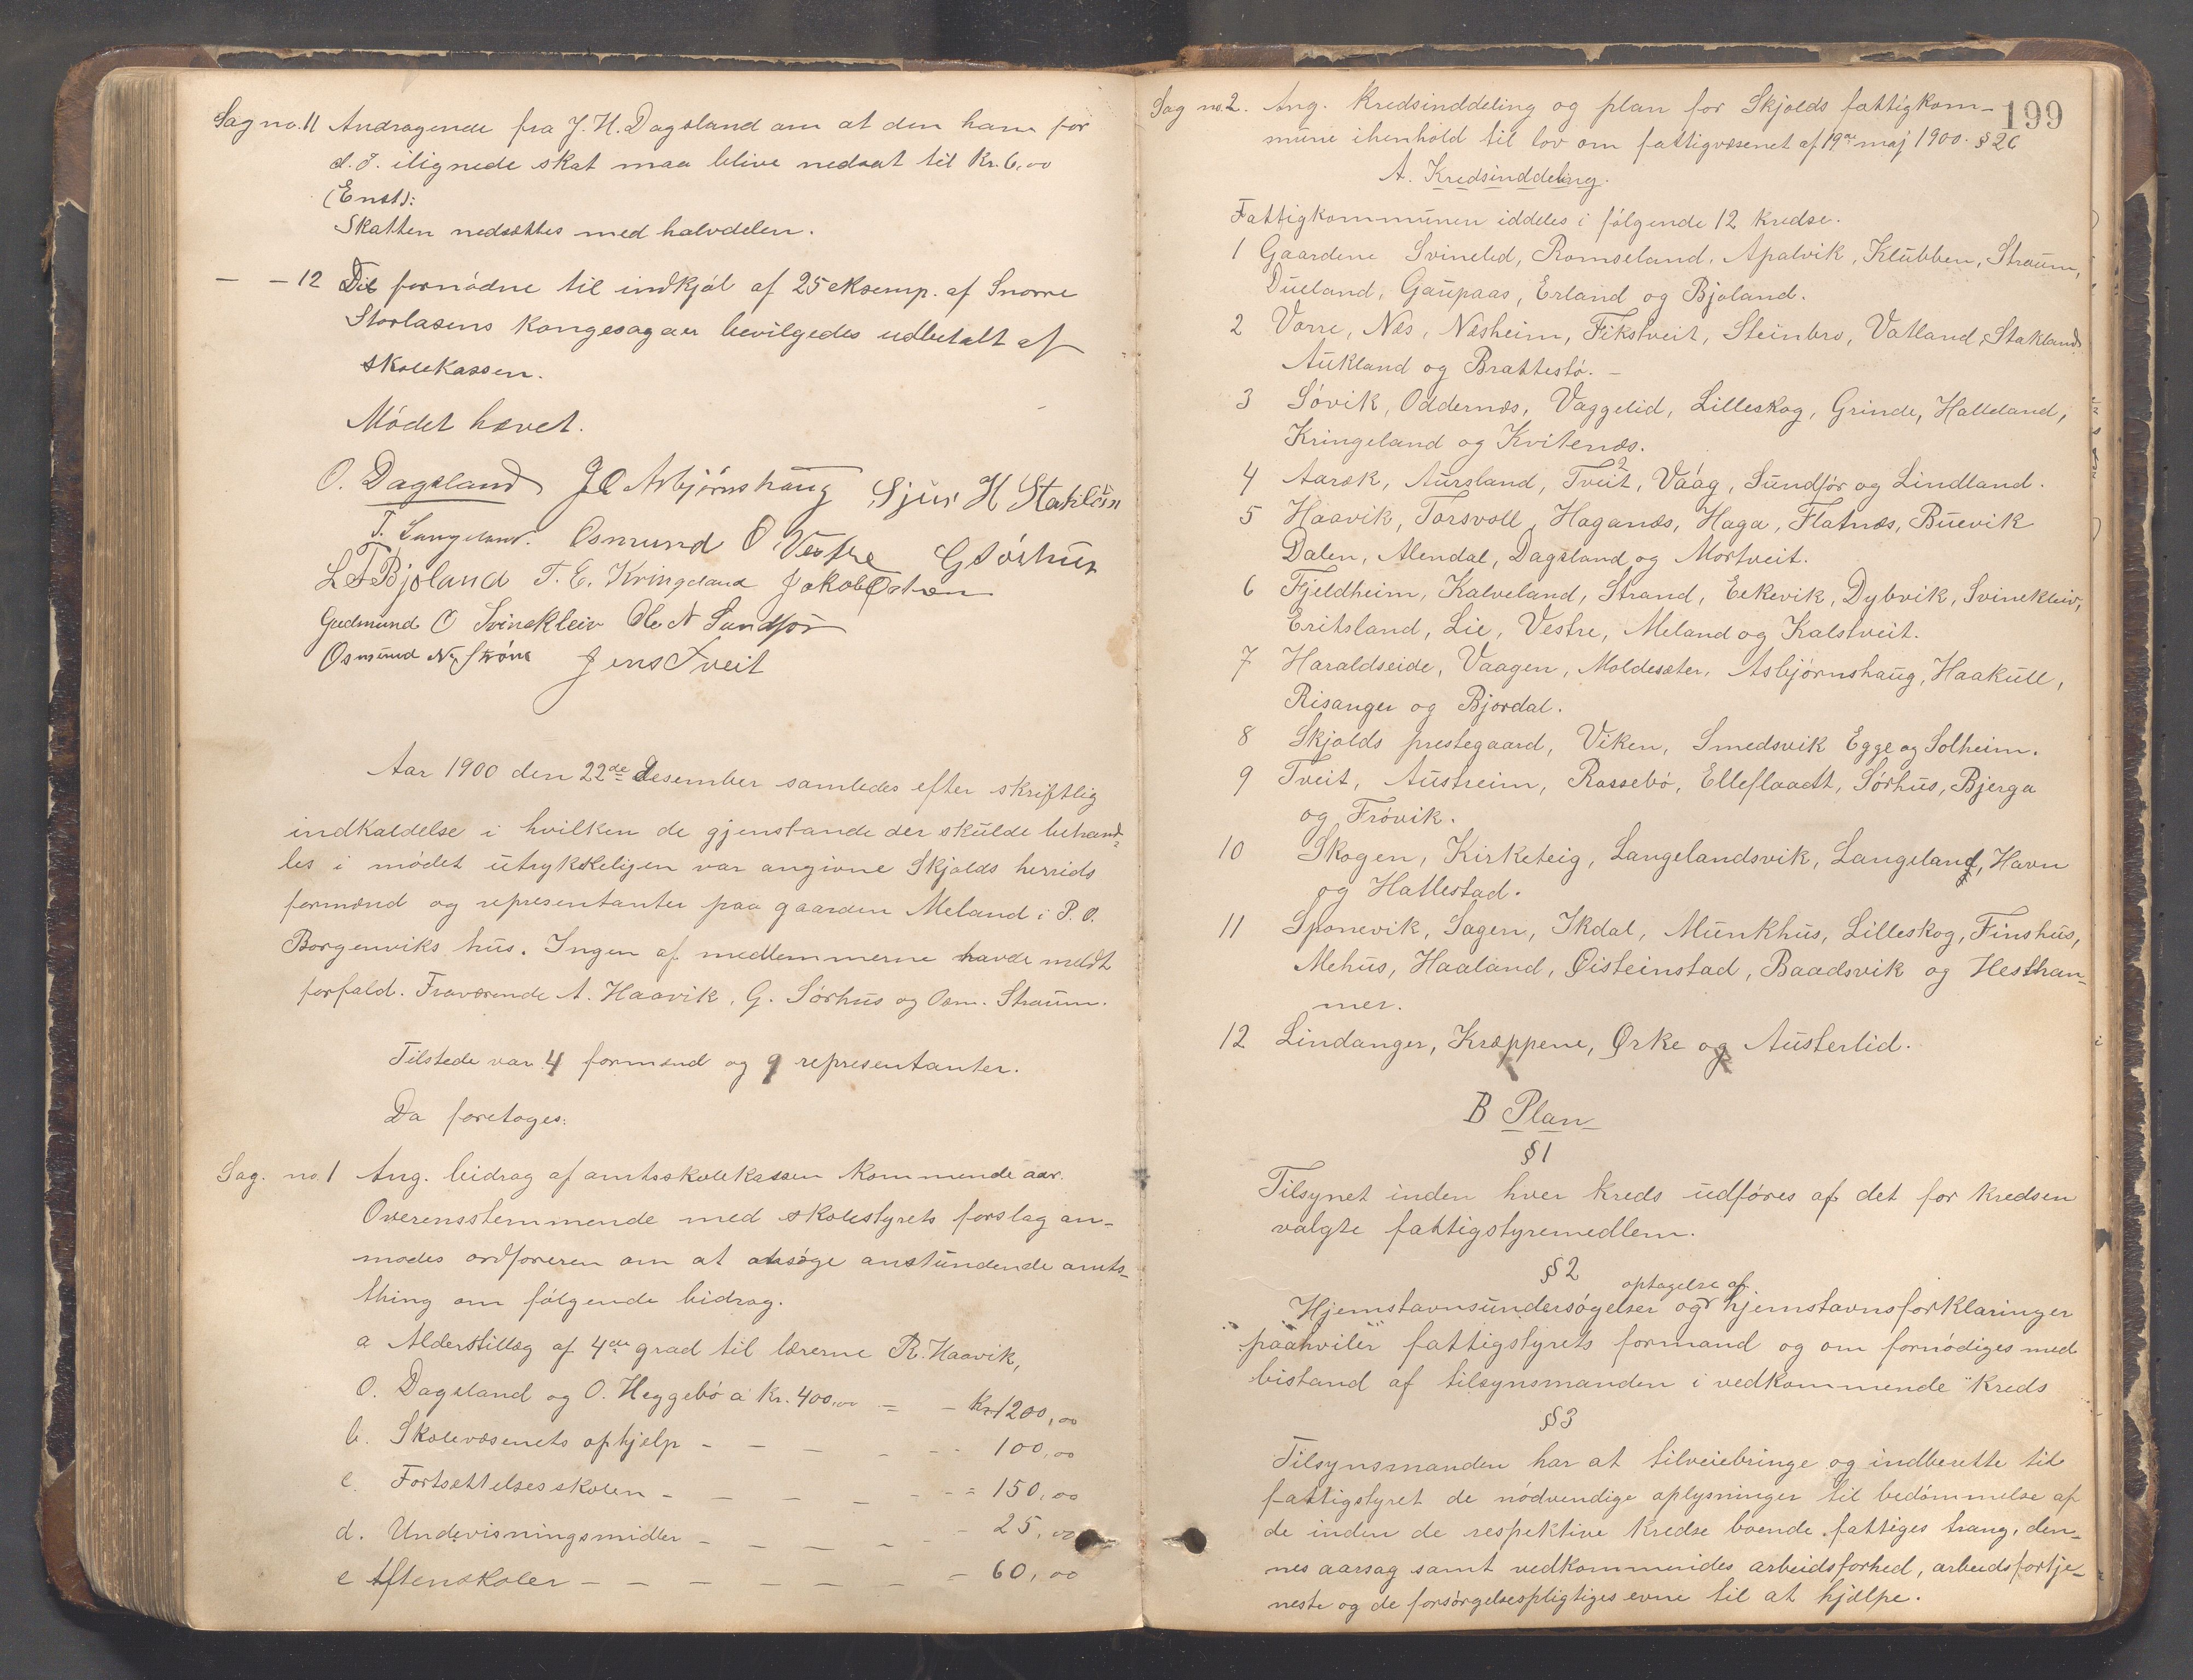 Sag no. 11 Andragende fra J. H. Dagsland om at den ham for
d. T. ilignede skat maa blive nedsat til Kr. 6,00
(Enst):
Skatten nedsættes med halvdelen.
— - 12 Det fornødne til indkjøb af 25 eksemp. af Snorre
Storlasens Kongesagaer bevilgedes udbetalt af
skolekassen.
Mødet hævet.
O. Dagsland J O Asbjørnshaug Sjur H Stakland
T. Langeland. Osmund O Vestre G Sørhus
L T Bjoland T. E. Kringeland Jakob
Gudmund O Svinekleiv Ole N Sundfør
Osmund N. Jens Tveit
Aar 1900 den 22de desember samledes efter skriftlig
indkaldelse i hvilken de gjenstande der skulde behand=
les i mødet utrykkeligen var angivne Skjolds herrids
formænd og representanter paa gaarden Meland i P. O.
Borgenviks hus. Ingen af medlemmerne havde meldt
forfald. Fraværende A. Haavik, G. Sørhus og Osm. Straum.
Tilstede var 4 formænd og 9 representanter.
Da foretoges:
Sag. no. 1 Ang. bidrag af amtsskolekassen kommende aar.
Overensstemmende med skolestyrets forslag an-
modes ordføreren om at ansøge anstundende amts-
thing om følgende bidrag.
a Alderstillæg af 4de grad til lærerne R. Haavik,
O. Dagsland og O. Heggebø a Kr. 400,00 = - Kr 1200,00
b. Skolevæsenets ophjelp - - - - - 100,00
c. Fortsættelsesskolen - - - - - = 150,00
d. Undervisningsmidler - - - - - 25,00
e Aftenskoler - - - - - - - 60,00
199
Sag no. 2. Ang. Kredsinddeling og plan for Skjolds fattigkom-
mune ihenhold til lov om fattigvæsenet af 19de maj 1900. § 26
A. Kredsinddeling.
Fattigkommunen iddeles i følgende 12 kredse.
1 Gaardene Svinelid, Romseland, Apalvik, Klubben, Straum,
Dueland, Gaupaas, Erland og Bjoland.
2 Vorre, Næs, Næsheim, Fikstveit, Steinbro, Vatland, Stakland
Aukland og Brattestø. -
3 Søvik, Oddernæs, Vaggelid, Lilleskog, Grinde, Halleland,
Kringeland og Kvitenæs.
4 Aaræk, Aursland, Tveit, Vaag, Sundfør og Lindland.
5 Haavik, Torsvoll, Haganæs, Haga, Flatnæs, Buevik
Dalen, Alendal, Dagsland og Mortveit.
6 Fjeldheim, Kalveland, Strand, Eekevik, Dybvik, Svinekleiv,
Eritsland, Lie, Vestre, Meland og Kalstveit.
7 Haraldseide, Vaagen, Moldesæter, Asbjørnshaug, Haakull,
Risanger og Bjordal.
8 Skjolds prestegaard, Viken, Smedsvik Egge og Solheim.
9 Tveit, Austreim, Rossebø, Elleflaadt, Sørhus, Bjerga
og Frøvik.
10 Skogen, Kirketeig, Langelandsvik, Langeland, Havn
og Hatlestad.
11 Sponevik, Sagen, Ikdal, Munkhus, Lilleskog, Finshus,
Mehus, Haaland, Øisteinstad, Baadsvik og Hestham-
mer.
12 Lindanger, Kræppene, Ørke og Austerlid.
B Plan
§ 1
Tilsynet inden hver kreds udføres af det for kredsen
valgte fattigstyremedlem.
§ 2
optagelse af
Hjemstavnsundersøgelser og hjemstavnsforklaringer
paahviler fattigstyrets formand og om fornødiges med
bistand af tilsynsmanden i vedkommende kreds
§ 3
Tilsynsmanden har at tilveiebringe og indberette til
fattigstyret de nødvendige oplysninger til bedømmelse af
de inden de respektive kredse boende fattiges trang, den-
nes aarsag samt vedkommendes arbeidsforhed, arbeidsfortje-
neste og de forsørgelsespligtiges evne til at hjælpe.